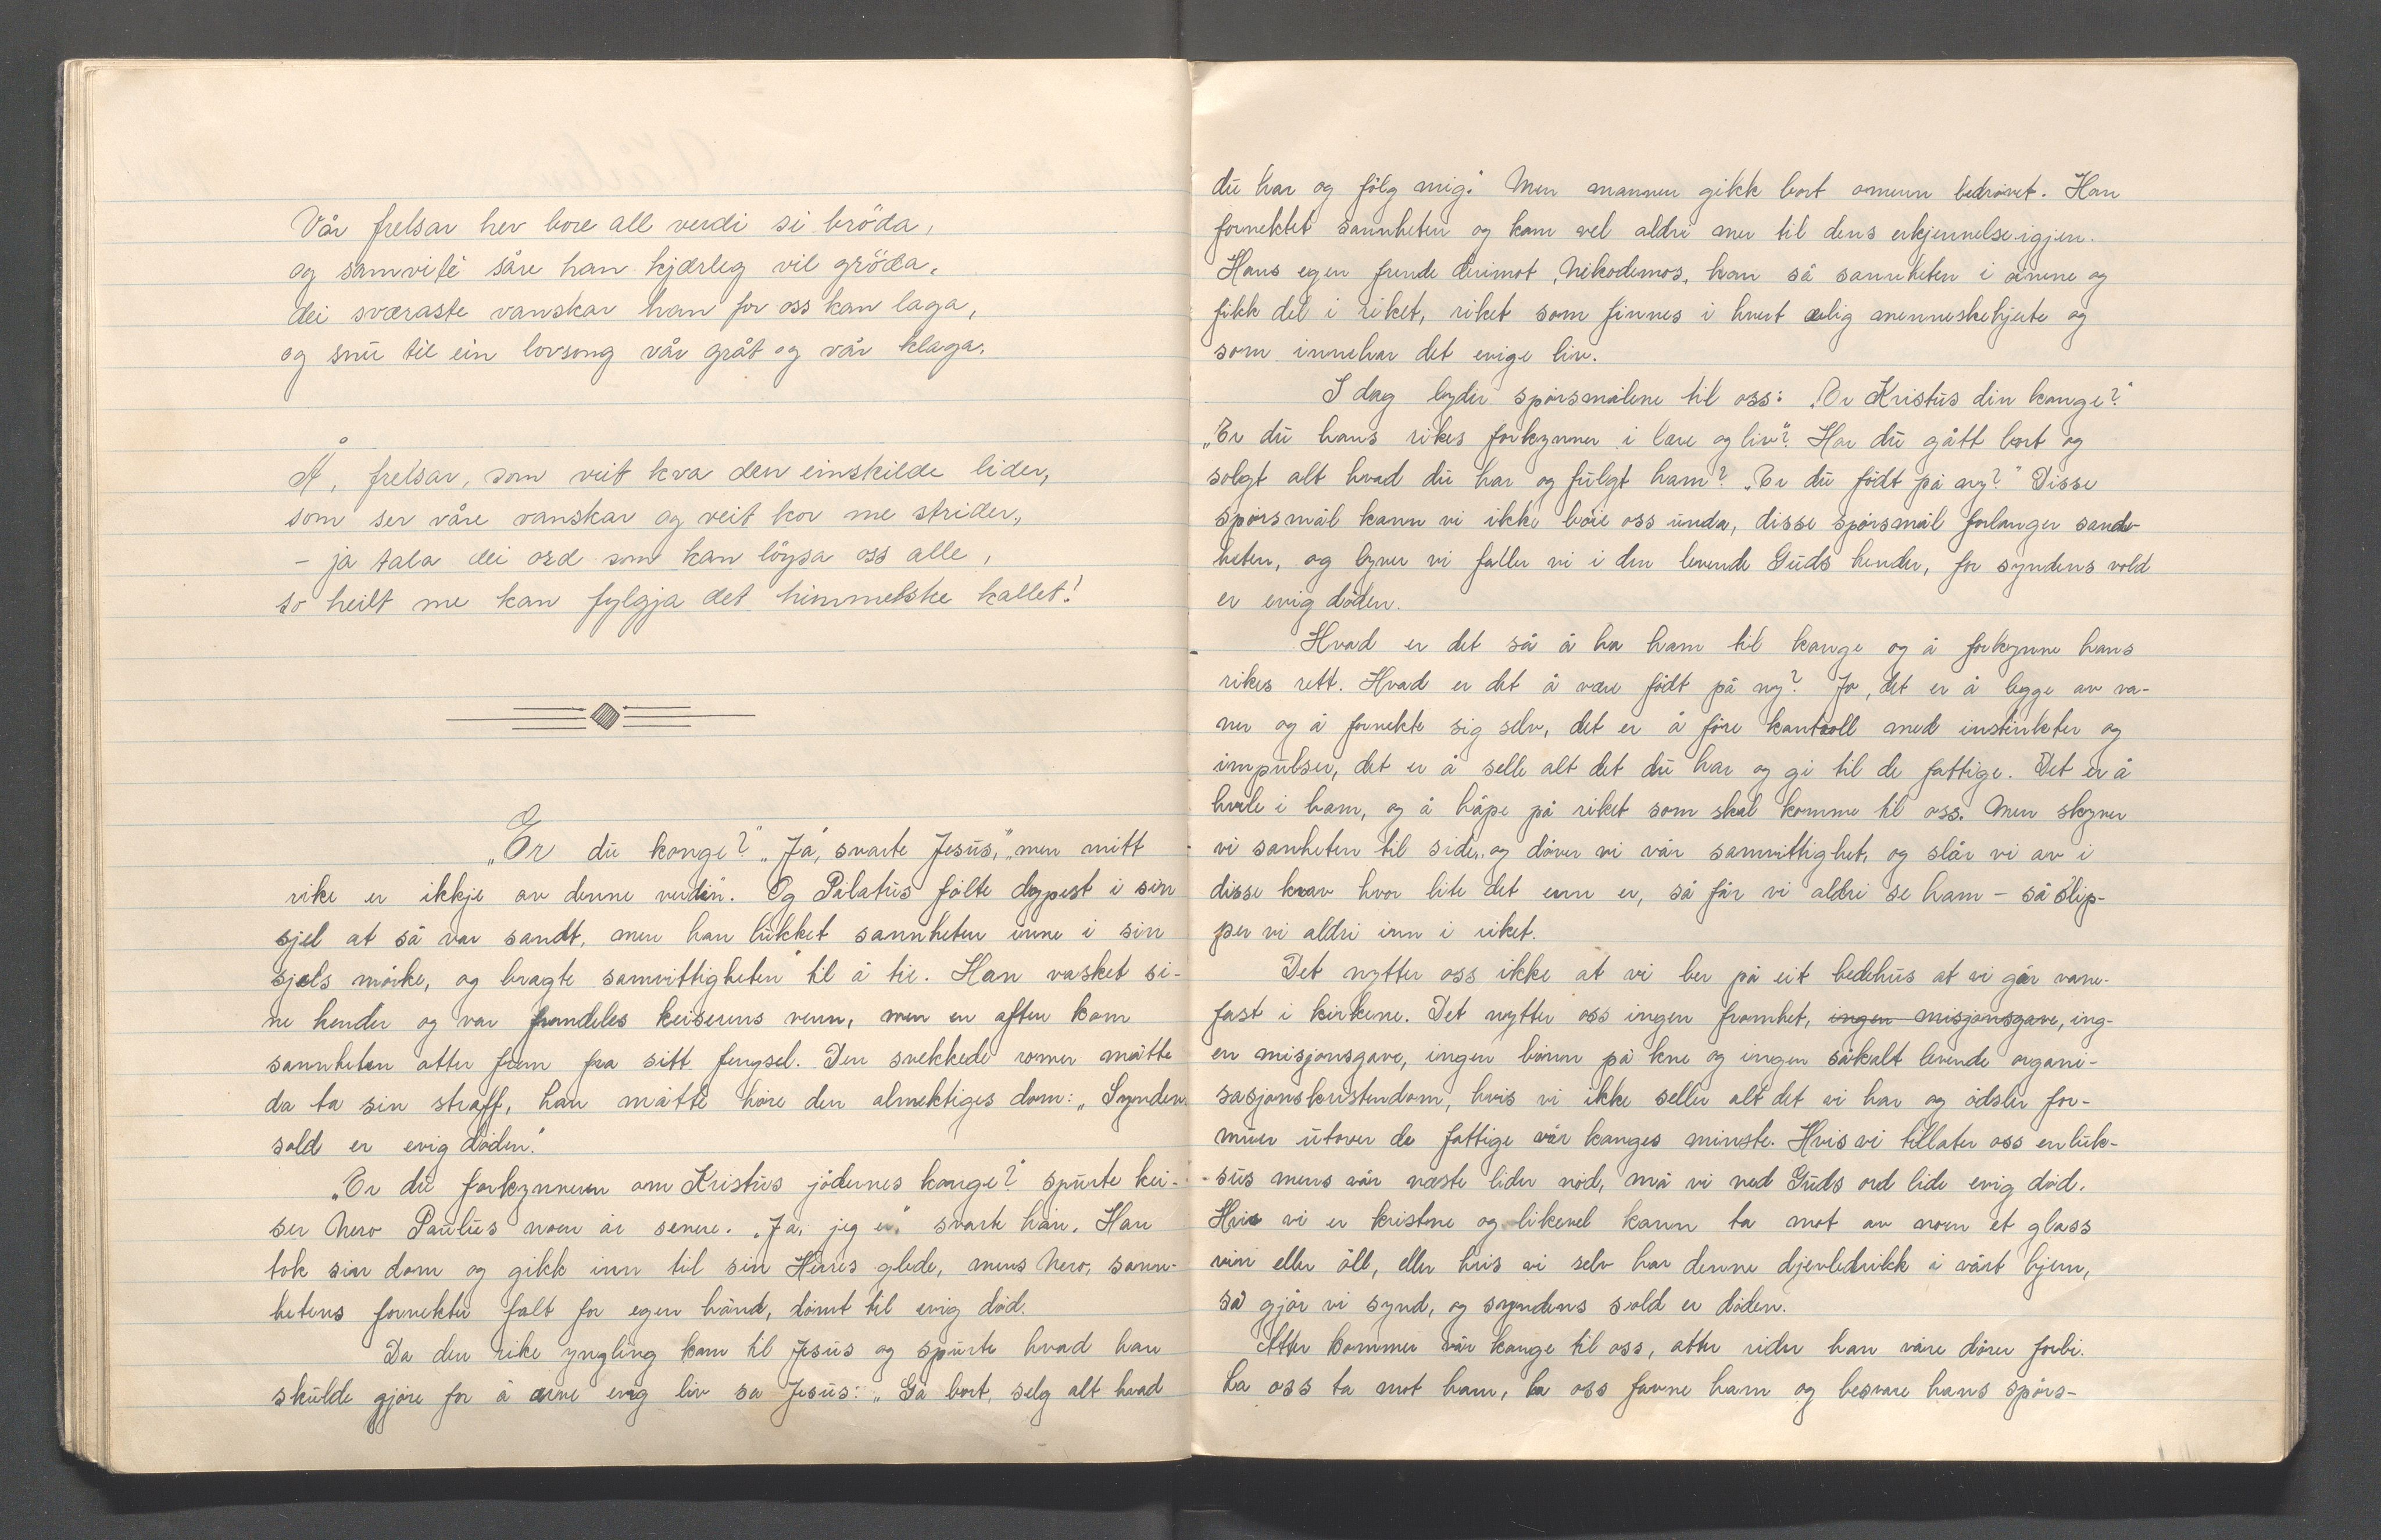 Vår frelsar hev bore all verdi si bröda,
og samvite såre han kjærleg vil gröda,
dei sværaste vanskar han for oss kan laga,
og snu til ein lovsong vår gråt og vår klaga.
Å, frelsar, som veit kva den einskilde lider,
som ser våre vanskar og veit kor me strider,
– ja tala dei ord som kan löysa oss alle,
so heilt me kan fylgja det himmelske kallet!
„Er du konge?" „Ja, svarte Jesus," „men mitt
rike er ikkje av denne verden". Og Pilatus fölte dypest i sin
sjel at så var sandt, men han lukket sannheten inne i sin
sjels mörke, og bragte samvittigheten til å tie. Han vasket si-
ne hender og var fremdeles keiserens venn, men en aften kom
sannheten atter frem fra sitt fengsel. Den svekkede romer måtte
da ta sin straff, han måtte höre den almektiges dom: „Synden
sold er evig döden."
„Er du forkynneren om Kristus jödernes konge?" spurte kei-
ser Nero Paulus noen år senere. „Ja, jeg er." svarte han. Han
tok sin dom og gikk inn til sin Herres glede, mens Nero, sann-
hetens fornekter falt for egen hånd, dömt til evig död.
Da den rike yngling kom til Jesus og spurte hvad han
skulde gjöre for å arve evig liv sa Jesus: „Gå bort, selg alt hvad
du har og fölg mig." Men mannen gikk bort omenn bedrövet. Han
fornektet sannheten og kom vel aldri mer til dens erkjennelse igjen.
Hans egen frende derimot, Nikodemos, han så sannheten i öinene og
fikk del i riket, riket som finnes i hvert ærlig menneskehjerte og
som innehar det evige liv.
I dag lyder spörsmålene til oss: „Er Kristus din konge?"
„Er du hans rikes forkynner i lære og liv"? Har du gått bort og
solgt alt hvad du har og fulgt ham? „Er du födt på ny?" Disse
spörsmål kann vi ikke böie oss unda, disse spörsmål forlanger sand-
heten, og lyver vi faller vi i den levende Guds hender, for syndens vold
er evig döden.
Hvad er det så å ha ham til konge og å forkynne hans
rikes rett. Hvad er det å være födt på ny? Jo, det er å legge av va-
ner og å fornekte sig selv, det er å före kontroll med instinkter og
impulser, det er å selle alt det du har og gi til de fattige. Det er å
hvile i ham, og å håpe på riket som skal komme til oss. Men skyver
vi sanheten til side, og döver vi vår samvittighet, og slår vi av i
disse krav hvor lite det enn er, så får vi aldri se ham – så slip-
per vi aldri inn i riket.
Det nytter oss ikke at vi ber på eit bedehus at vi går vane-
fast i kirkene. Det nytter oss ingen fromhet, ingen misjonsgave, ing-
en misjonsgave, ingen bönn på kne og ingen såkalt levende organi-
sasjonskristendom, hvis vi ikke seller alt det vi har og ödsler for-
muer utover de fattige vår konges minste. Hvis vi tillater oss en luk-
sus mens vår næste lider nöd, må vi ved Guds ord lide evig död.
Hvis vi er kristne og likevel kann ta mot av noen et glass
vin eller öll, eller hvis vi selv har denne djevledrikk i vårt hjem,
så gjör vi synd, og syndens sold er döden.
Atter kommer vår konge til oss, atter rider han våre dörer forbi.
La oss ta mot ham, la oss favne ham og besvare hans spörs-